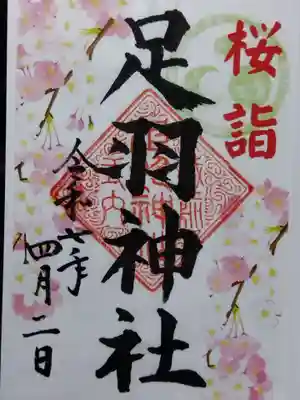 桜詣
足羽神社
令和六年
四月二日